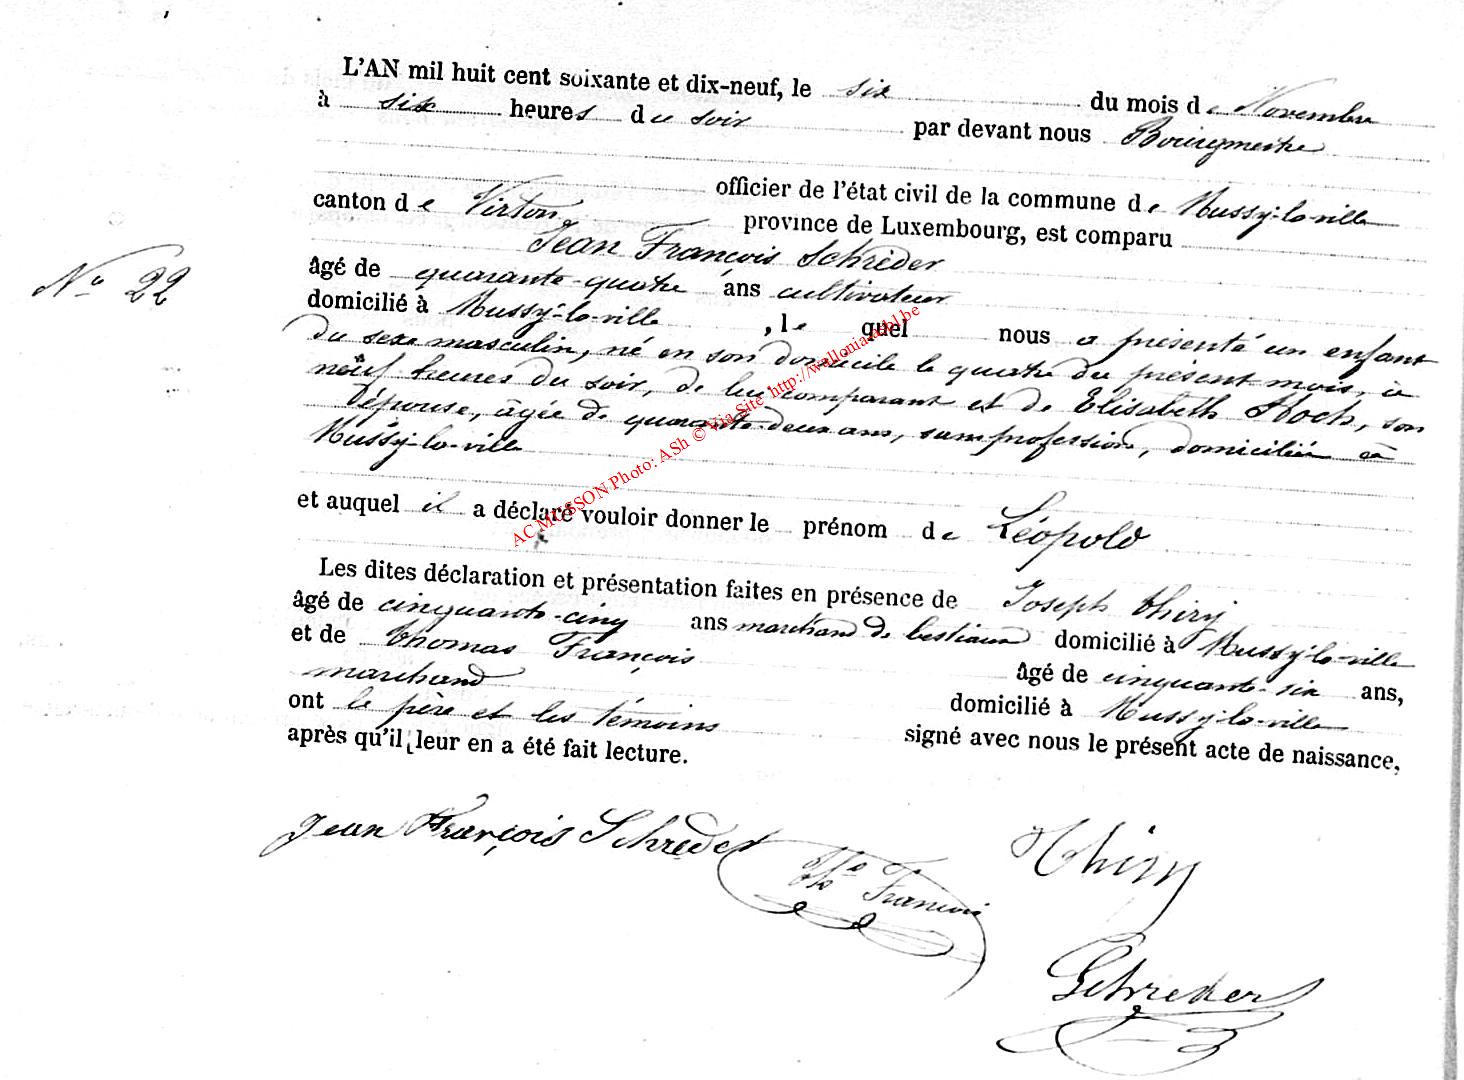 L'AN mil huit cent soixante et dix-neuf, le six du mois de Novembre
à six heures du soir par devant nous Bourgmestre
officier de l'état civil de la commune de Mussy-la-ville
canton de Virton province de Luxembourg, est comparu
Jean François Schréder
âgé de quarante-quatre ans cultivateur
domicilié à Mussy-la-ville, lequel nous a présenté un enfant
du sexe masculin, né en son domicile le quatre du présent mois, à
neuf heures du soir, de lui comparant et de Elisabeth Hoch, son
épouse, âgée de quarante-deux ans, sans profession, domiciliée à
Mussy-la-ville
Nº 22
et auquel il a déclaré vouloir donner le prénom de Léopold
Les dites déclaration et présentation faites en présence de Joseph Thiry
âgé de cinquante-cinq ans marchand de bestiaux domicilié à Mussy-la-ville
et de Thomas François âgé de cinquante-six ans,
marchand domicilié à Mussy-la-ville
ont le père et les témoins signé avec nous le présent acte de naissance,
après qu'il leur en a été fait lecture.
Jean François Schréder
Ths François
Thiry
Schreder
AC MUSSON Photo: ASh © Via Site http://wallonia-asbl.be